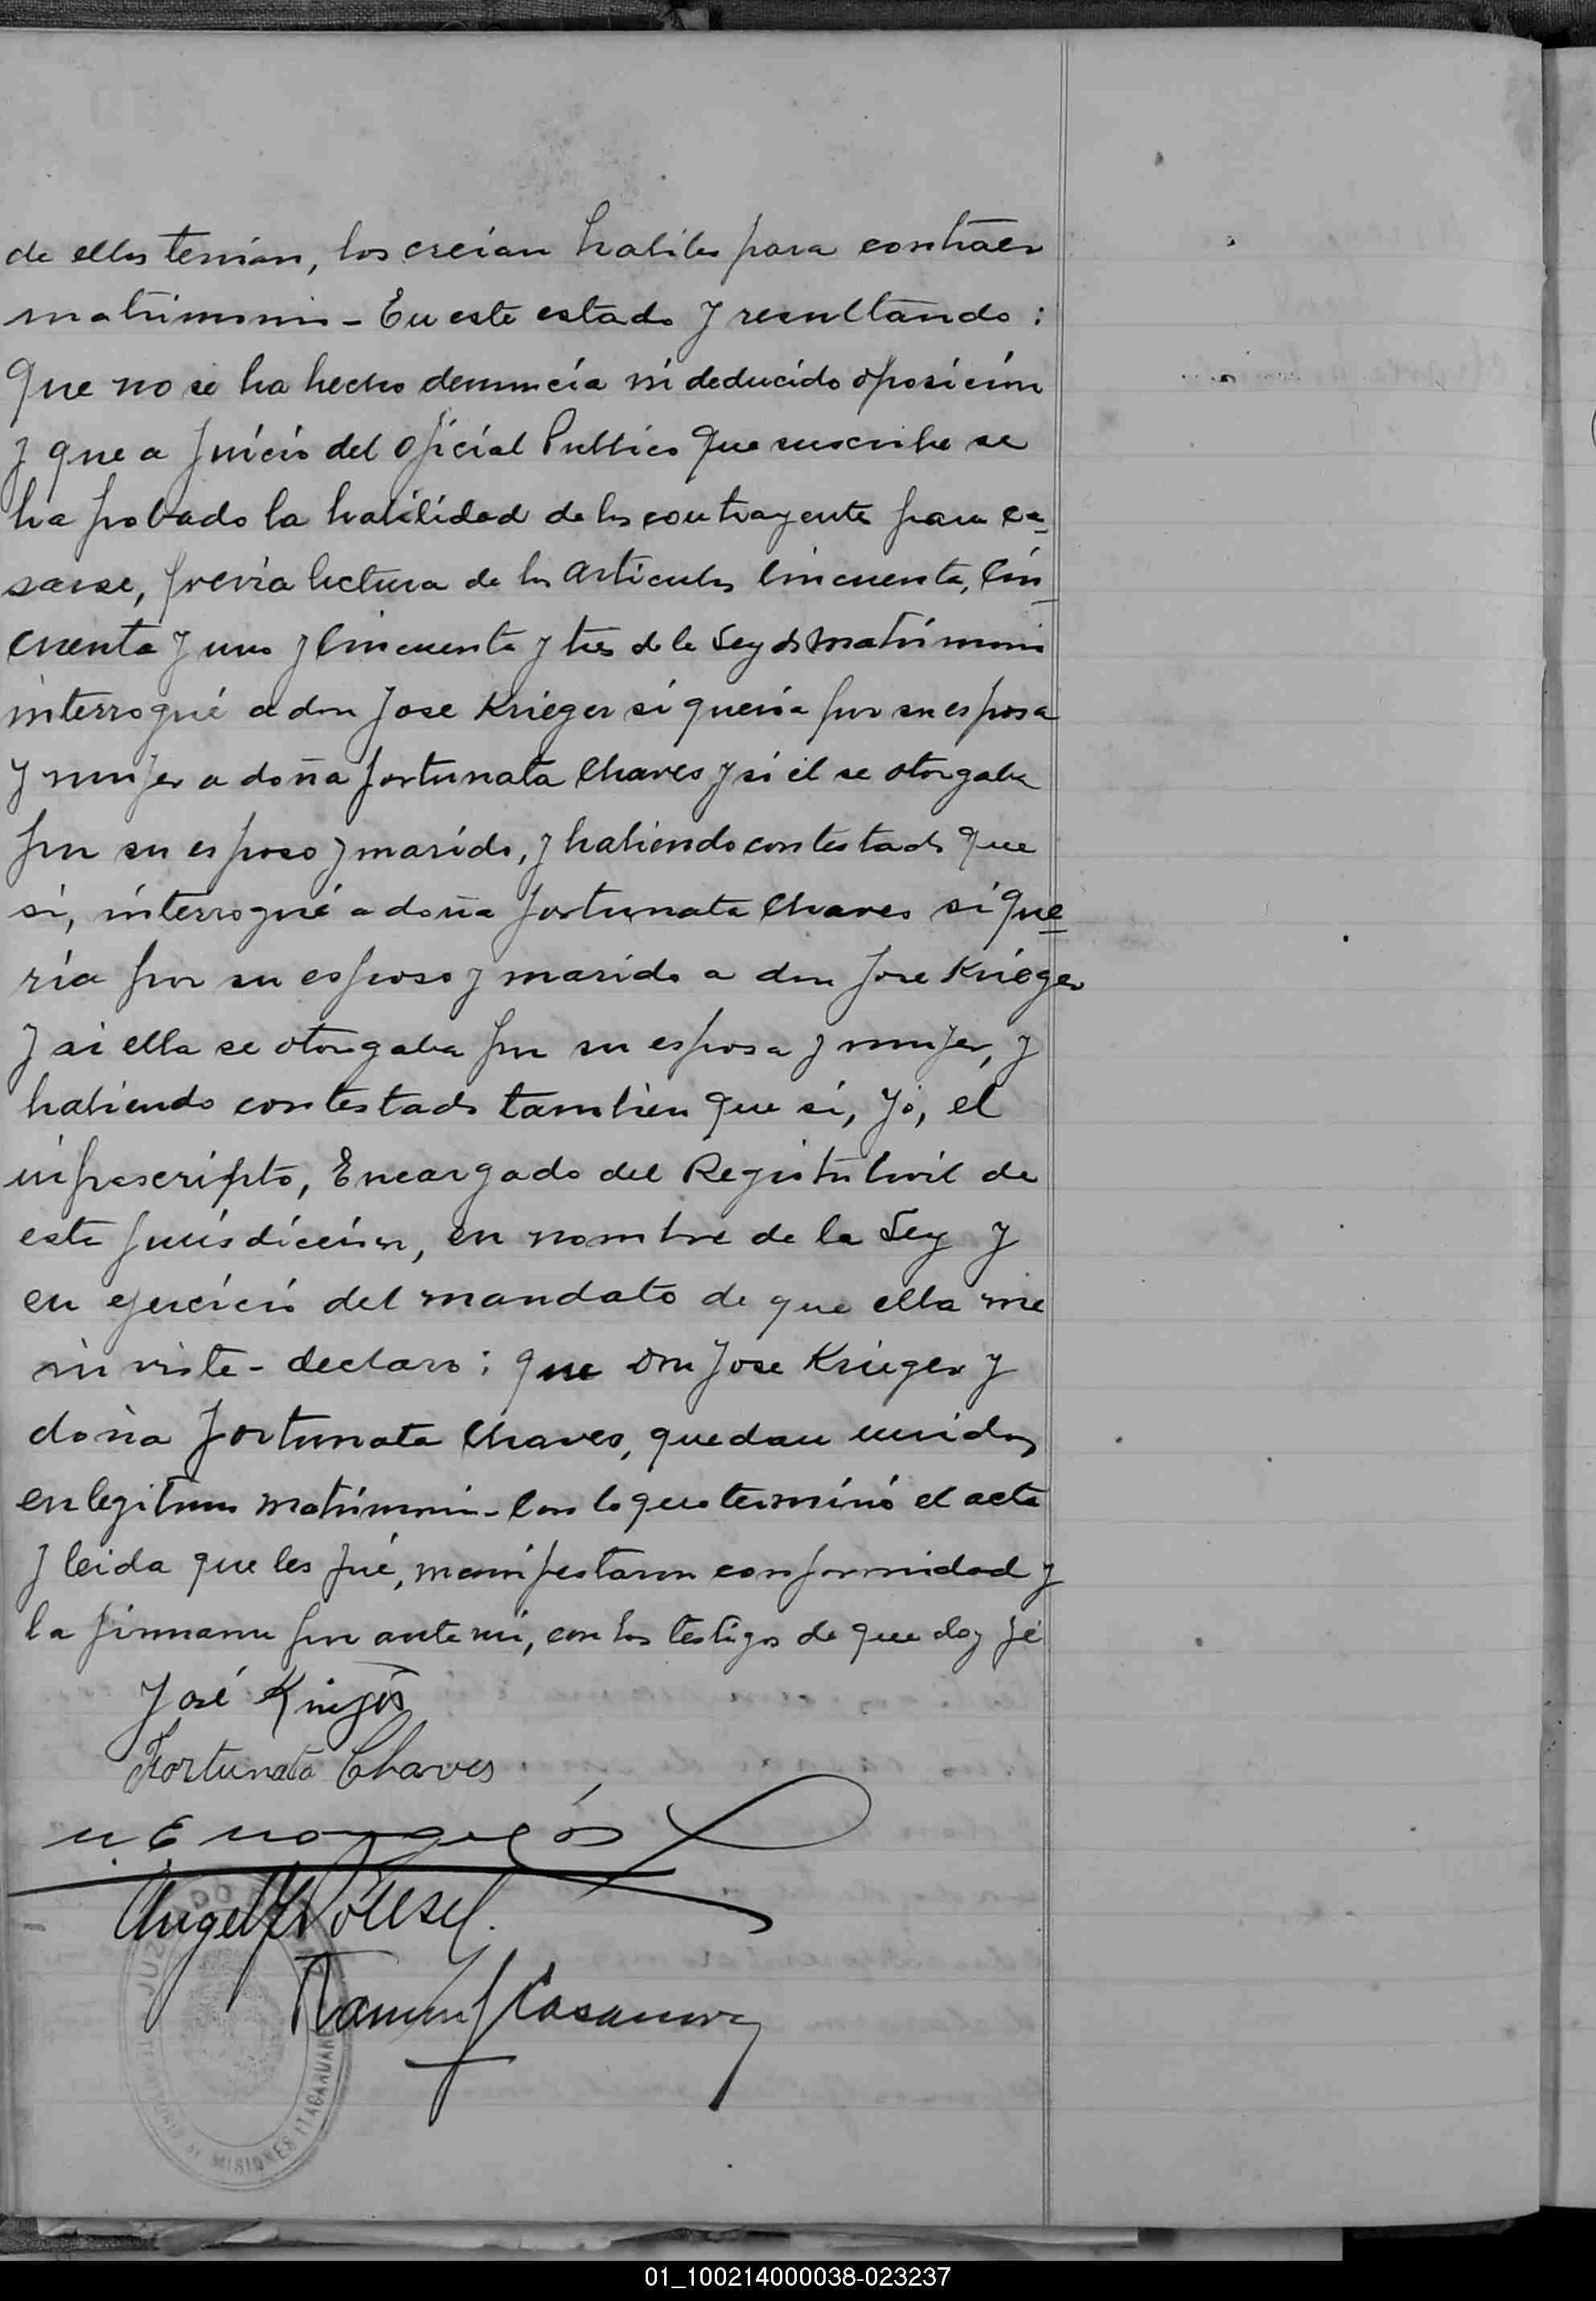 de ellos tenían, los creían habiles para contraer
matrimonio - En este estado y resultando:
Que no se ha hecho denuncia ni deducido oposición
y que a juicio del oficial Publico que suscribe se
ha probado la habilidad de los contrayente para ca-
sarse, previa lectura de los articulos cincuenta, cin-
cuenta y uno y cincuenta y tres de la Ley de Matrimonio
interrogué a don Jose Krieger si quería por su esposa
y mujer a doña fortunata Chaves y si él se otorgaba
por su esposo y marido, y habiendo contestado que
si, interrogué a doña fortunata Chaves si que-
ría por su esposo y marido a don Jose Krieger
y si ella se otorgaba por su esposa y mujer, y
habiendo contestado tambien que si, yo, el
infrascripto, Encargado del Registro Civil de
este jurisdicción, en nombre de la Ley y
en ejercicio del mandato de que ella me
inviste - declaro: que Don Jose Krieger y
doña fortunata Chaves, quedan unidos
en legitimo matrimonio - Con lo que terminó el acta
y leida que les fué, manifestaron conformidad y
la firmaron por ante mi, con los testigos de que doy fé
José Krieger
Fortunata Chaves
Angel
Ramón J Casanova
JUZGADO
TERRITORIO DE MISIONES ITACARUARE
01_100214000038-023237